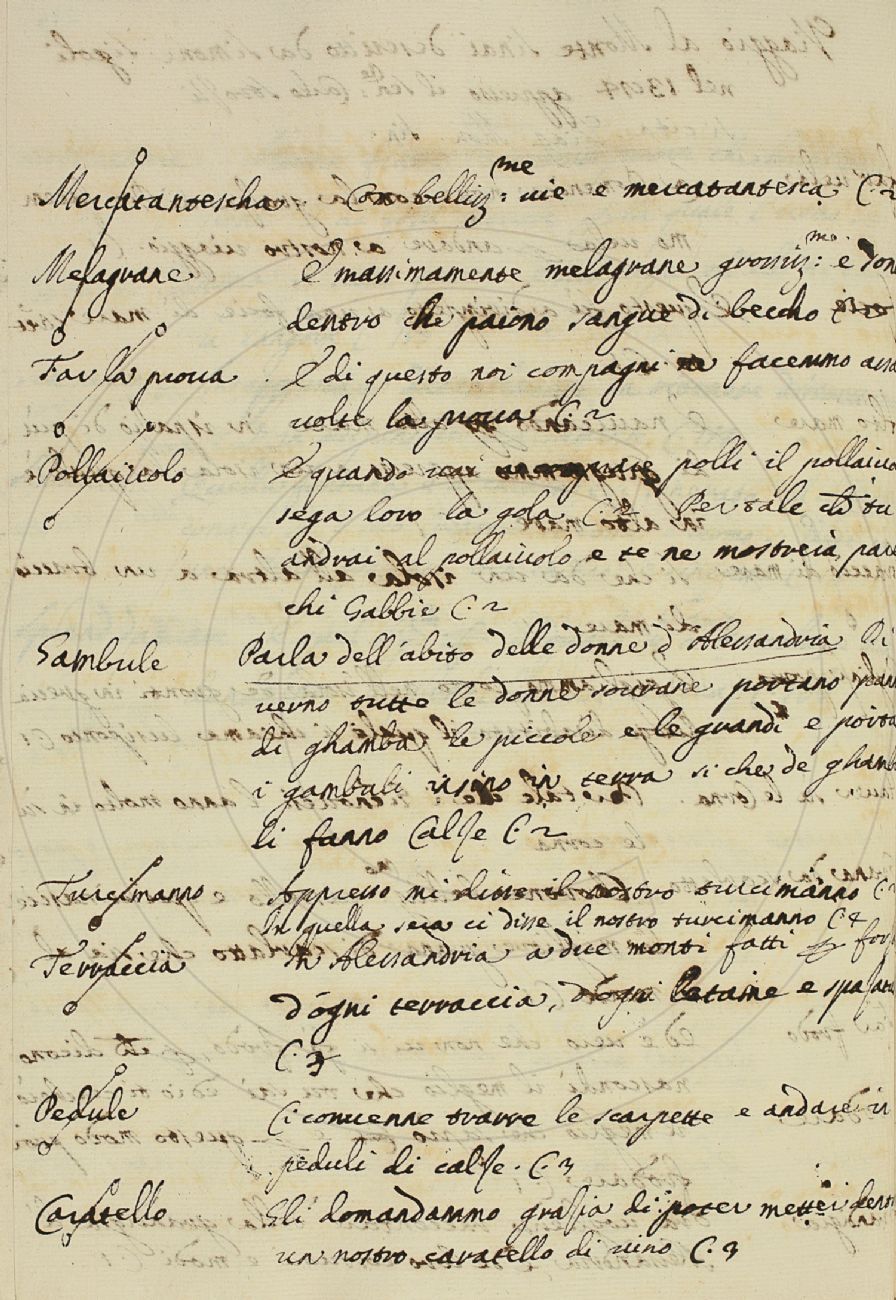 Mercatantescha Con belliz:me vie e mercatantesca C. 2
Melagrane E massimamente melagrane grossiz:me e son
dentro che paiono sangue di beccho C. 2
Far la pruova E di questo noi compagni facemmo assa
volte la pruova C. 2
Pollaiuolo E quando vuoi polli il pollaiuo
sega loro la gola C. 2 Per tale che tu
andrai al pollaiuolo e te ne mostrerà parec
chi Gabbie C. 2
Gambule Parla dell'abito delle donne d'Alessandria Di
verno tutte le donne sovrane portano
di ghamba le piccole e le grandi e porta
i gambuli insino in terra si che de ghamb
li fanno Calze C. 2
Turcimanno Appresso mi disse il nostro turcimanno C. 2
In quella sera ci disse il nostro turcimanno C. 4
Terraccia In Alessandria a due monti fatti per for
d'ogni terraccia, d'ogni letame e spazat
C. 3
Pedule Ci convenne trarre le scarpette e andare in
peduli di calze. C. 3
Caratello Gli domandammo grazia di poter metter dent
un nostro caratello di vino C. 3